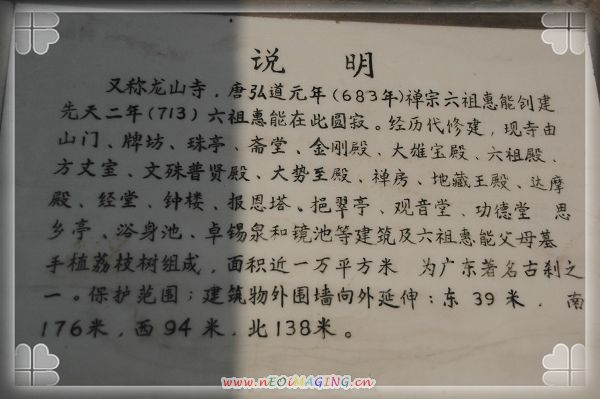 说 明
又称龙山寺，唐弘道元年(683年)禅宗六祖惠能创建
先天二年(713)六祖惠能在此圆寂。经历代修建，现寺由
山门、牌坊、珠亭、斋堂、金刚殿、大雄宝殿、六祖殿、
方丈室、文殊普贤殿、大势至殿、禅房、地藏王殿、达摩
殿、经堂、钟楼、报恩塔、挹翠亭、观音堂、功德堂 思
乡亭、浴身池、卓锡泉和镜池等建筑及六祖惠能父母墓
手植荔枝树组成，面积近一万平方米 为广东著名古刹之
一。保护范围：建筑物外围墙向外延伸：东39米， 南
176米，西94米，北138米。
www.nEOiMAGING.cn